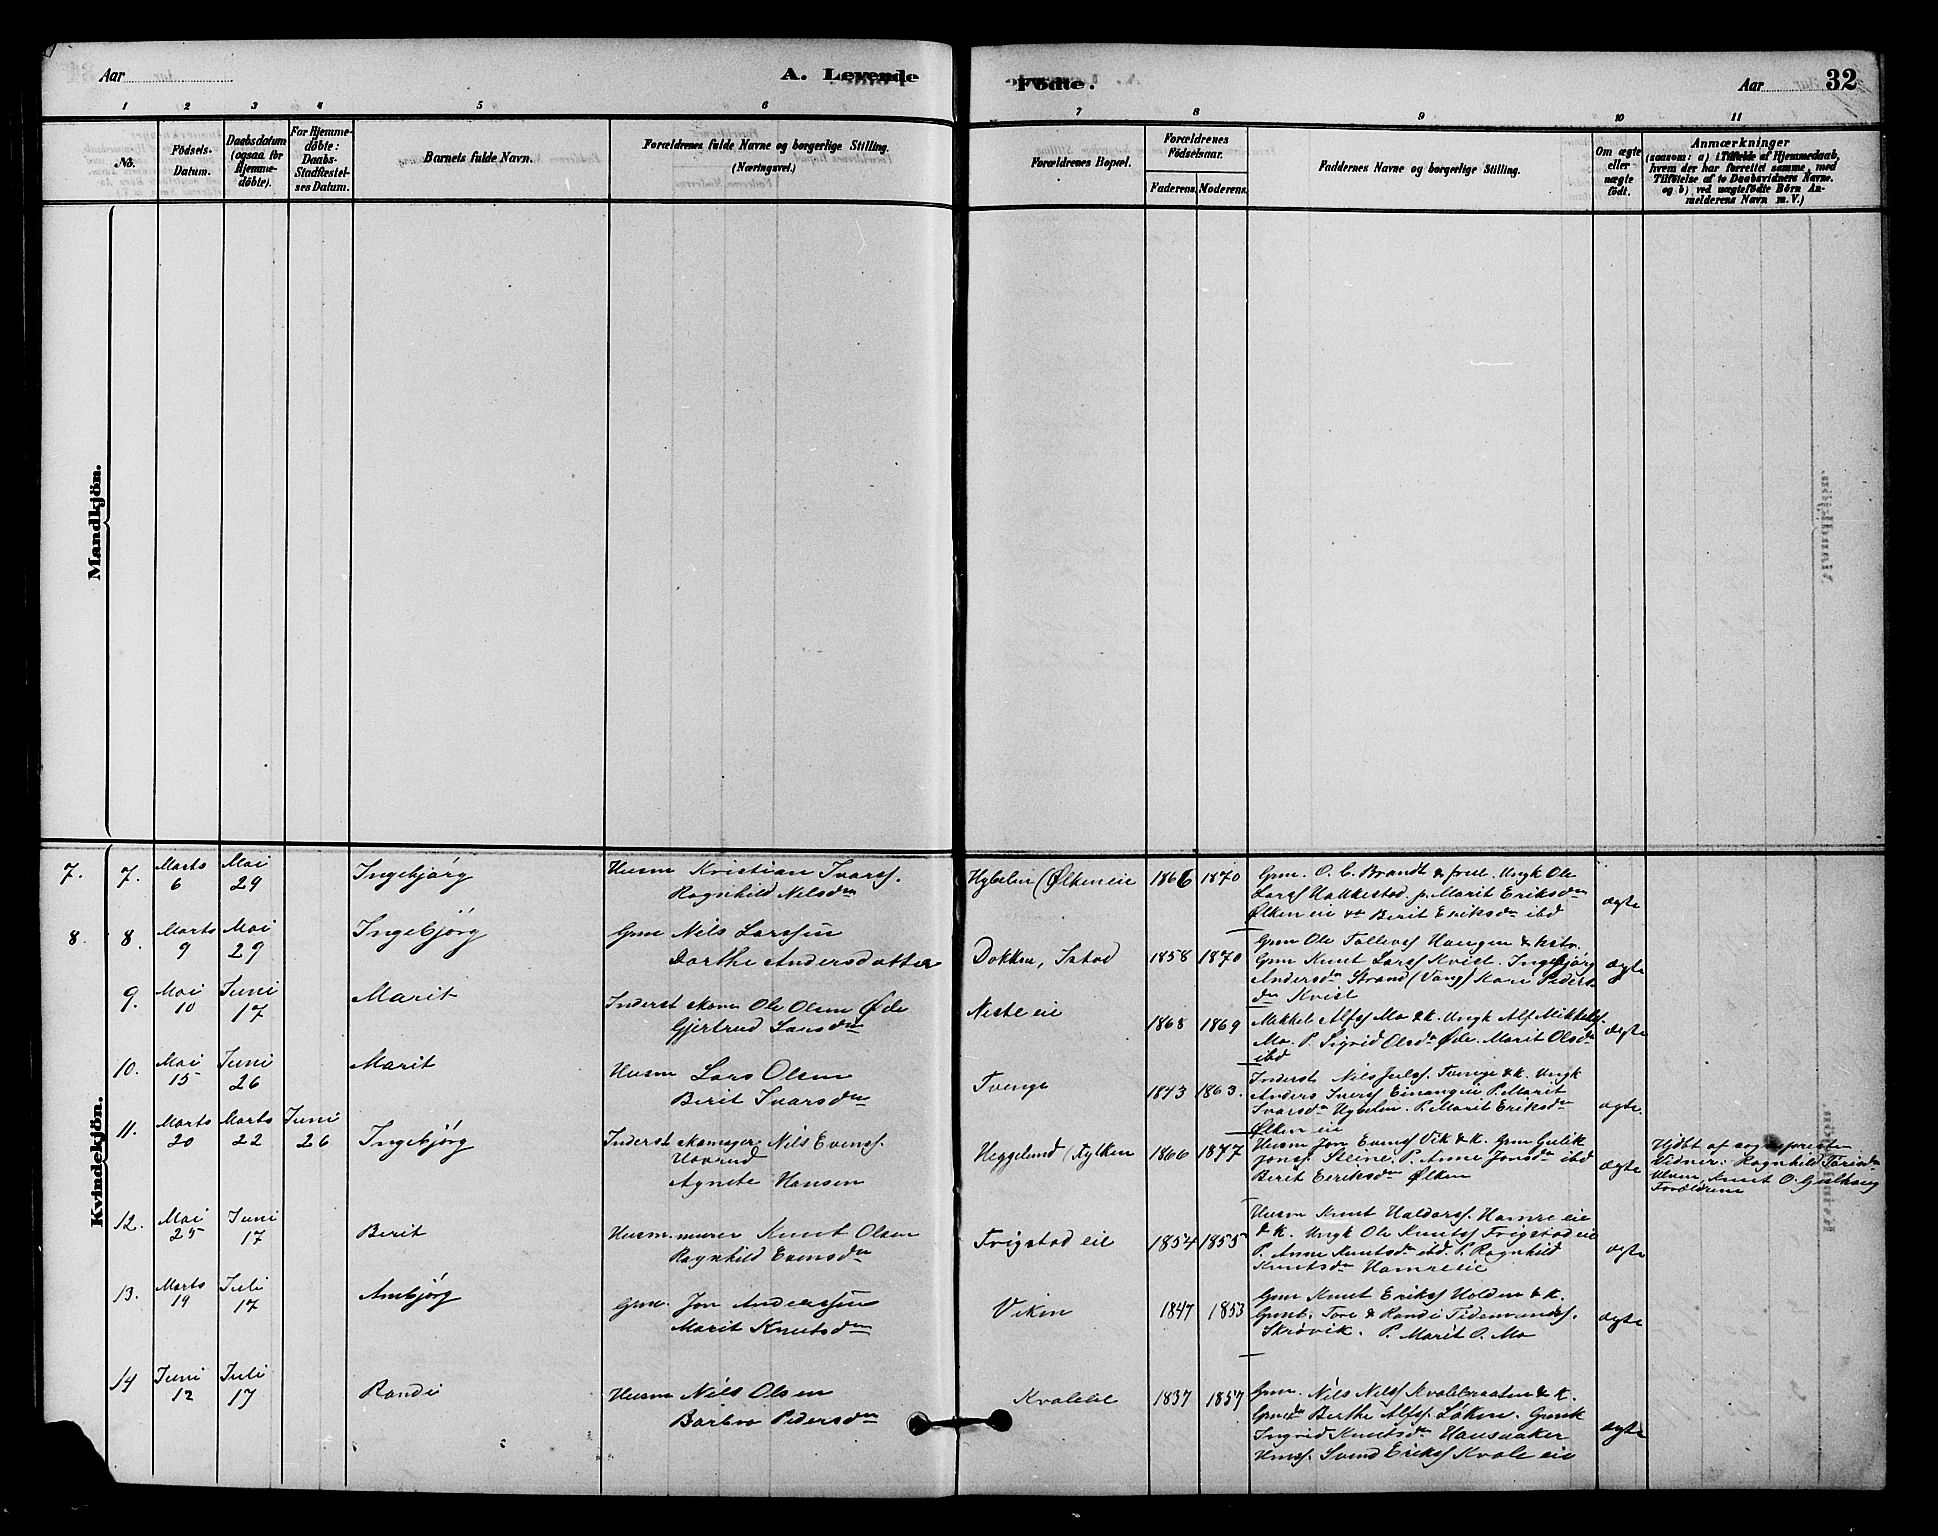 Aar
A. Levende
Fødte.
Aar
32
1 2 3 4 5 6 7 8 9 10 11
No.
Födsels-
Datum.
Daabsdatum
(ogsaa for
Hjemme-
döbte).
For Hjemme-
döbte:
Daabs-
Stadfæstel-
ses Datum.
Barnets fulde Navn.
Forældrenes fulde Navne og borgerlige Stilling.
(Næringsvei.)
Forældrenes Bopæl.
Forældrenes
Födselsaar.
Faderens.
Moderens.
Faddernes Navne og borgerlige Stilling.
Om ægte
eller
uægte
födt.
Anmærkninger
(saasom: a) i Tilfælde af Hjemmedaab,
hvem der har forrettet samme, med
Tilföielse af to Daabsvidners Navne.
og b) ved uægtefödte Börn An-
melderens Navn m. V.)
Mandkjön.
Kvindekjön.
7. 7. Marts 6 Mai 29 Ingebjörg
Husm Kristian Ivarss.
Ragnhild Nilsdn
Hybelin (Ølken eie 1866 1870
Gm. O. C. Brandt & frue. Ungk Ole
Larss Hakkestad p. Marit Eriksdn
Ølken eie Berit Eriksdn ibd
ægte
8. 8. Marts 9 Mai 29 Ingebjörg
Gm Nils Larssen
Dorthe Andersdatter
Dokken, Istad 1858 1870
Gm Ole Tollevss Haugen & kstr.
Gm Knut Larss Kvist. Ingebjörg
Andersdn Strand (Vang) Kari Peders
dn Kvist
ægte
9. Mai 10 Juni 17 Marit
Inderst skom Ole Olsen Øde
Gjertrud Larsdn
Neste eie 1868 1869
Mikkel Alfss Mo & k. Ungk Alf Mikkelss.
Mo. P. Sigrid Olsdn Øde. Marit Olsdn
ibd
ægte
10. Mai 15 Juni 26 Marit
Husm Lars Olsen
Berit Ivarsdn
Tvenge 1843 1863.
Inderst Nils Juls. Tvenge & k. Ungk
Anders Iverss Einangeie P. Marit
Ivarsdn Hybelin. P. Marit Eriksdn
Ølken eie
ægte
11. Marts 20 Marts 22 Juni 26 Ingebjörg
Inderst skomager Nils Evenss.
Hovrud
Agnete Hansen
Heggelund (Kylken 1866 1877
Husm Jon Evenss Vik & k. Gm Gulik
Jonss. Steine. P. Anne Jonsdn ibd
Berit Eeriksdn Ølken
ægte
Hjdbt af sognepresten
Vidner: Ragnhild
Knut O. Gulhaug
Forældrene
12. Mai 25 Juni 17 Berit
Husm. murer Knut Olsen
Ragnhild Evensdn
Frigstad eie 1854 1855
Husm Knut Haldorss. Hamre eie
& k. Ungk Ole Knutss Frigstad eie
P. Anne Knutsdn ibd. P. Ragnhild
Knutsdn Hamreeie
ægte
13. Marts 19 Juli 17 Ambjörg
Gm. Jon Anderssen
Marit Knutsdn
Viken 1847 1853
Gm Knut Erikss Holden & k.
Gmb. Tore & Randi Tidemandss.
Skrövik. P. Marit O. Mo
ægte
14 Juni 12 Juli 17 Randi
Husm Nils Olsen
Barbro Pedersdn
Kvaleeie 1837 1857
Gm. Nils Nilss Kvalebraaten & k.
Gmdn Berthe Alfss. Löken. Gmk
Ingrid Knutsdn Hausaaker
Hmss. Svend Erikss Kvale eie
ægte